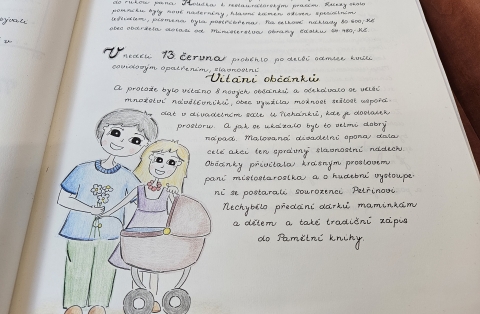 do rukou pana
k restaurátorským pracím
pomníku byly nově natřeny, hlavní kámen očištěn speciálním
písmena byla postříbřena. Na celkové náklady 80 500,- Kč
obec obdržela dotaci od Ministerstva obrany částku 50 480,- Kč.
V neděli 13. června proběhlo po delší odmlce kvůli
covidovým opatřením, slavnostní
Vítání občánků
A protože bylo vítáno 8 nových občánků a očekávalo se větší
množství návštěvníků, obec využila možnost sešlost uspořá
dat v divadelním sále u Pichánků, kde je dostatek
prostoru. A jak se ukázalo byl to velmi dobrý
nápad. Malovaná divadelní opona dala
celé akci ten správný slavnostní nádech.
Občánky přivítala krásným proslovem
paní místostarostka a o hudební vystoupe
ní se postarali sourozenci Petřinovi.
Nechybělo předání dárků maminkám
a dětem a také tradiční zápis
do Pamětní knihy.